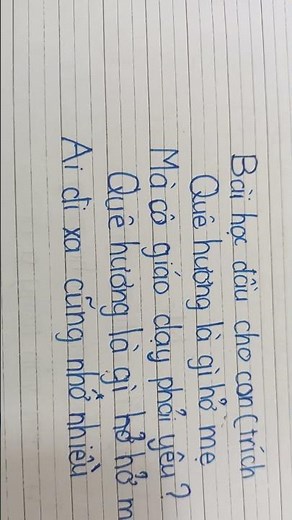 Bài học đầu cho con (trích
Quê hương là gì hở mẹ
Mà cô giáo dạy phải yêu?
Quê hương là gì hở m
Ai đi xa cũng nhớ nhiều